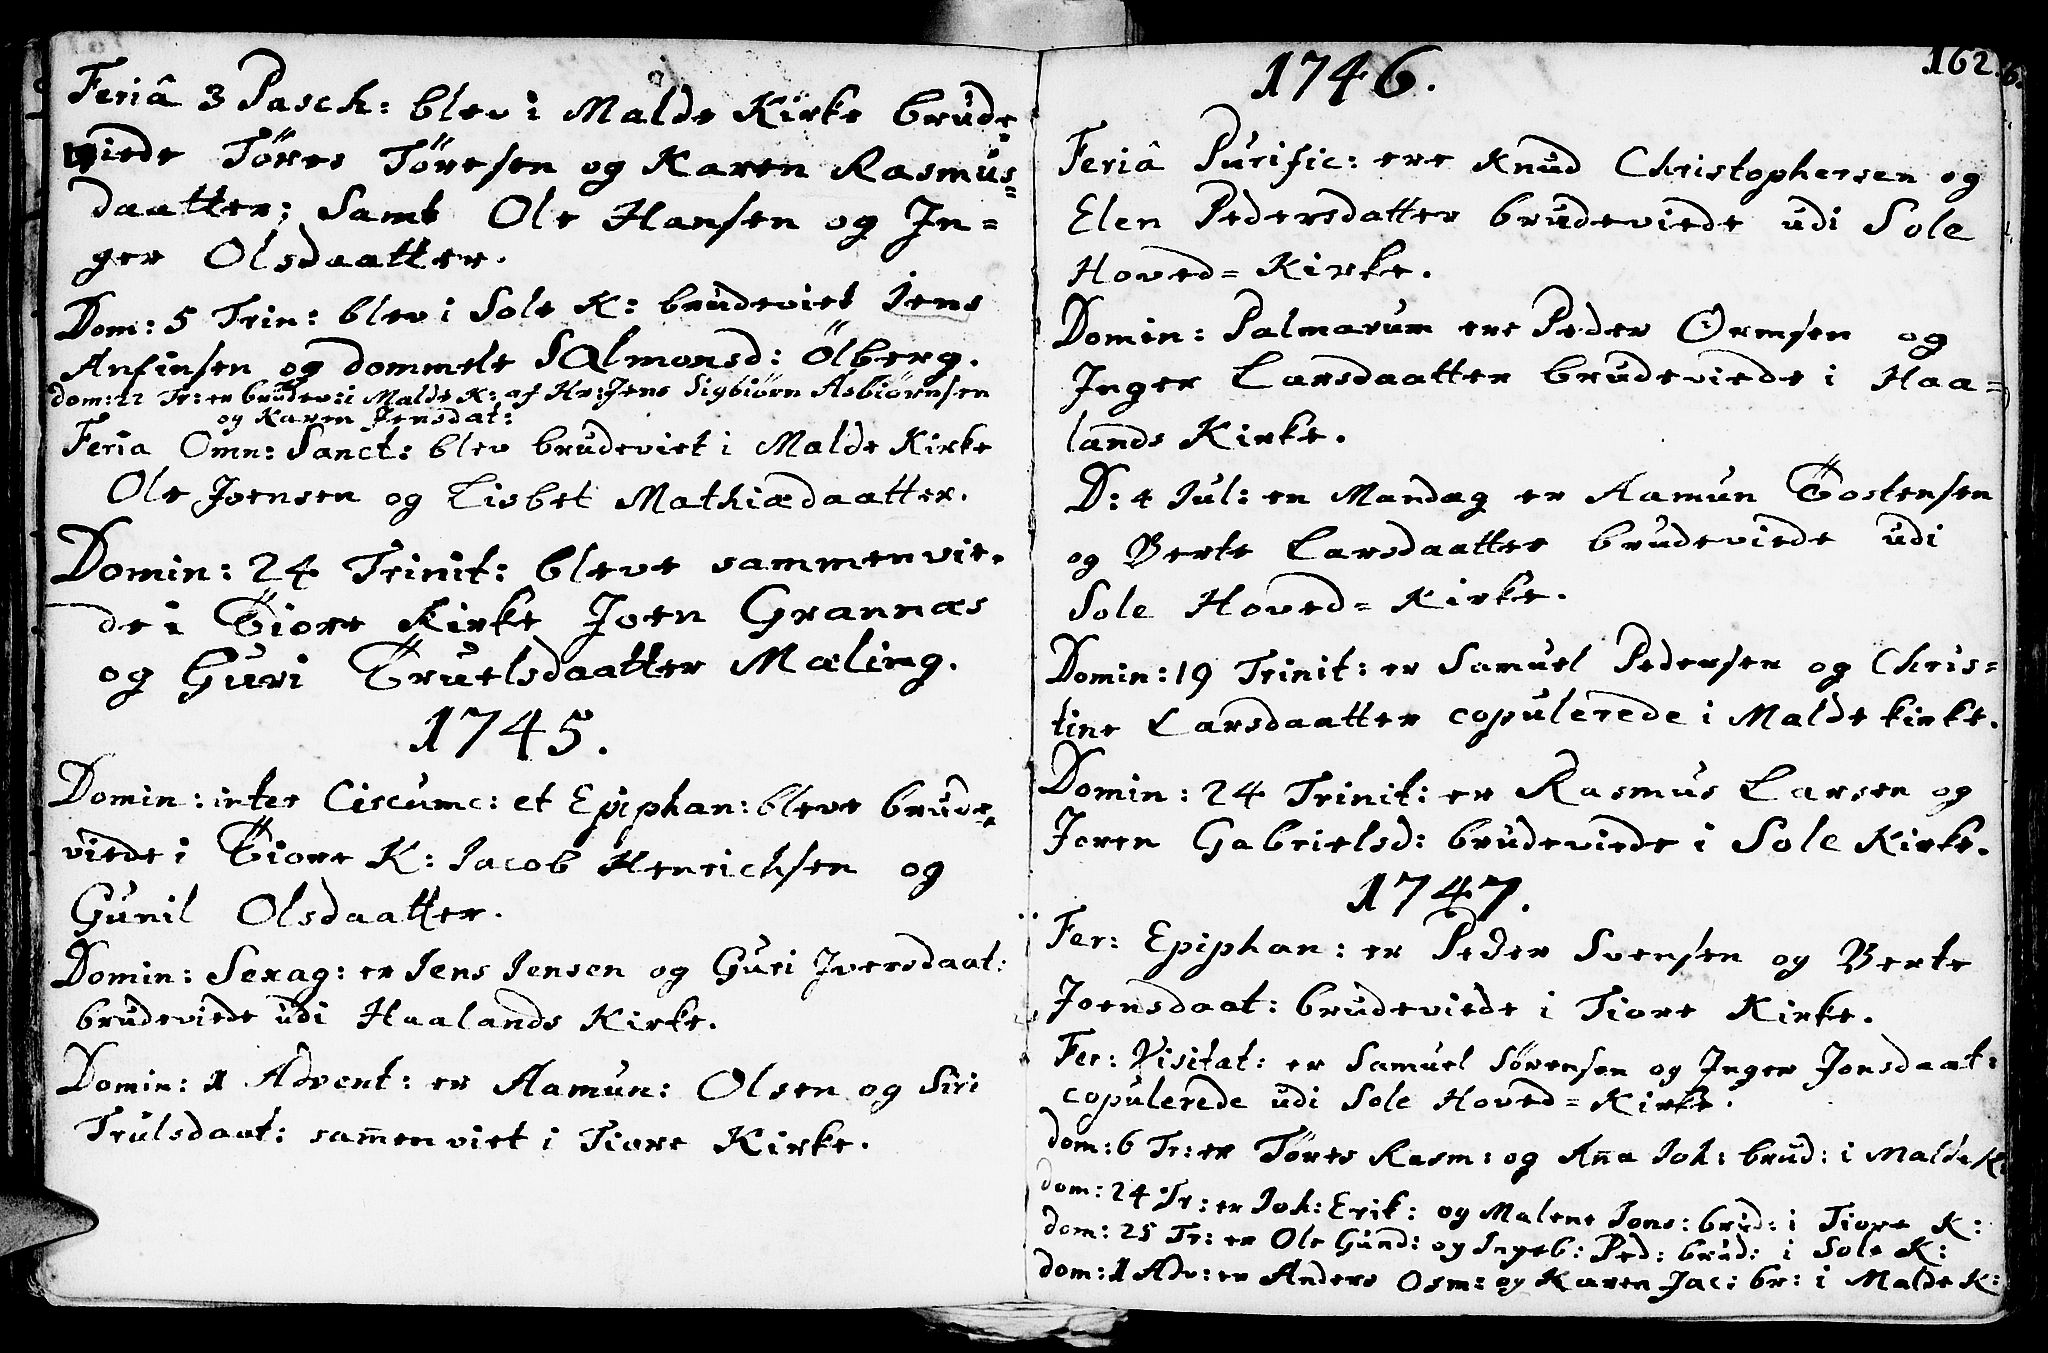 Feriâ 3 Pasch: blev i Malde Kirke brude=
viede Töres Töresen og Karen Rasmus=
daatter; Samt Ole Hansen og In=
ger Olsdaatter.
Dom: 5 Trin: blev i Sole K: brudeviet Jens
Anfinsen og dommele SAlmonsd: Ölberg.
dom: 22 Tr: er brudev: i Malde K: af Hr: Jens Sigbiörn Asbiörnsen
og Karen Jensdat:
Feria Omn: Sanct: blev brudeviet i Malde Kirke
Ole Joensen og Lisbet Mathiædaatter.
Domin: 24 Trinit: bleve sammenvie=
de i Tiore Kirke Joen Grannæs
og Guri Truelsdaatter Mæling.
1745.
Domin: inter Circumc: et Epiphan: bleve brude=
viede i Tiore K: Jacob Henrichsen og
Gunil Olsdaatter.
Domin: Sexag: er Jens Jensen og Guri Iversdaat:
brudeviede udi Haalands Kirke.
Domin: 1 Advent: er Aamun: Olsen og Siri
Trulsdaat: sam̄enviet i Tiore Kirke.
162.
1746.
Feriâ Purific: ere Knud Christophersen og
Elen Pedersdatter brudeviede udi Sole
Hoved=Kirke.
Domin: Palmarum ere Peder Ormsen og
Inger Larsdaatter brudeviede i Haa=
lands Kirke.
D: 4 Jul: en Mandag er Aamun Tostensen
og Berte Larsdaatter brudeviede udi
Sole Hoved=Kirke.
Domin: 19 Trinit: er Samuel Pedersen og Chris=
tine Larsdaatter copulerede i Malde kirke.
Domin: 24 Trinit: er Rasmus Larsen og
Joren Gabrielsd: brudeviede i Sole Kirke.
1747.
Fer: Epiphan: er Peder Svensen og Berte
Joensdaat: brudeviede i Tiore Kirke.
Fer: Visitat: er Samuel Sörensen og Inger Jonsdaat:
copulerede udi Sole Hoved=Kirke.
dom: 6 Tr: er Töres Rasm: og An̄a Joh: brud: i Malde K:
dom: 24 Tr: er Joh: Erik: og Malene Jons: brud: i Tiore K:
dom: 25 Tr: er Ole Gund: og Ingeb: Ped: brud: i Sole K:
dom: 1 Adv: er Anders Osm: og Karen Jac: br: i Malde K: